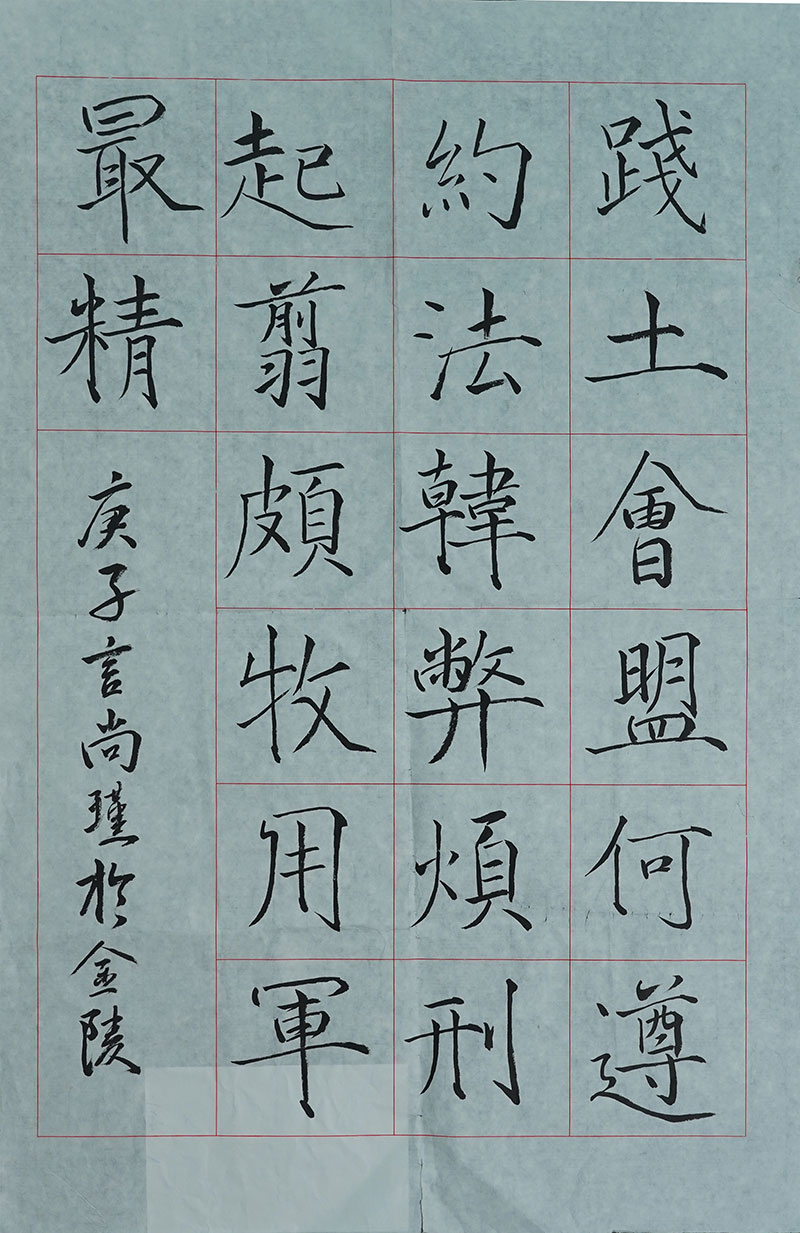 踐土會盟何遵
約法韓弊煩刑
起翦頗牧用軍
最精
庚子言尚瑾於金陵